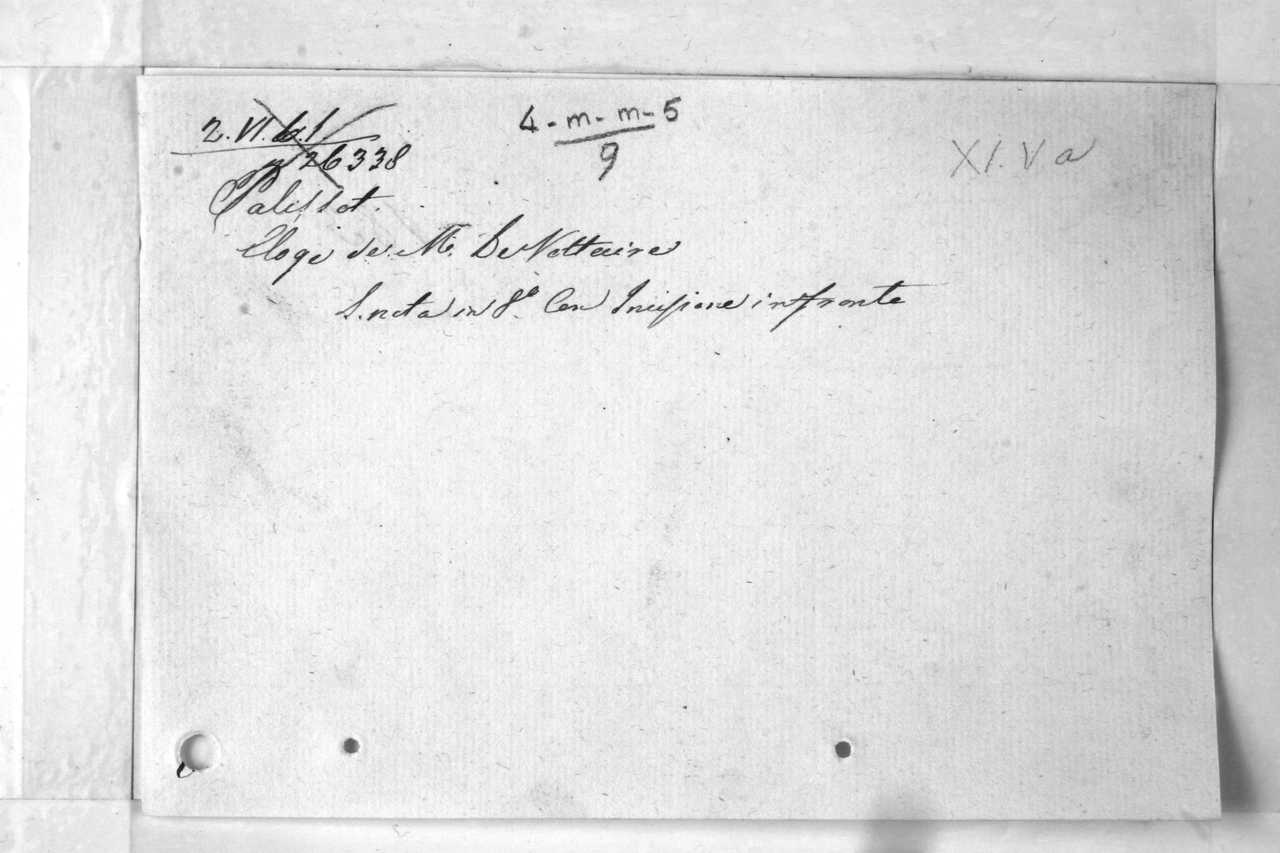 2. VI. b. 1
n 26338
4-m-m-5
9
XI. V a
Palissot.
Eloge de M. De Voltaire
S. nota in 8.º Con Incisione in fronte